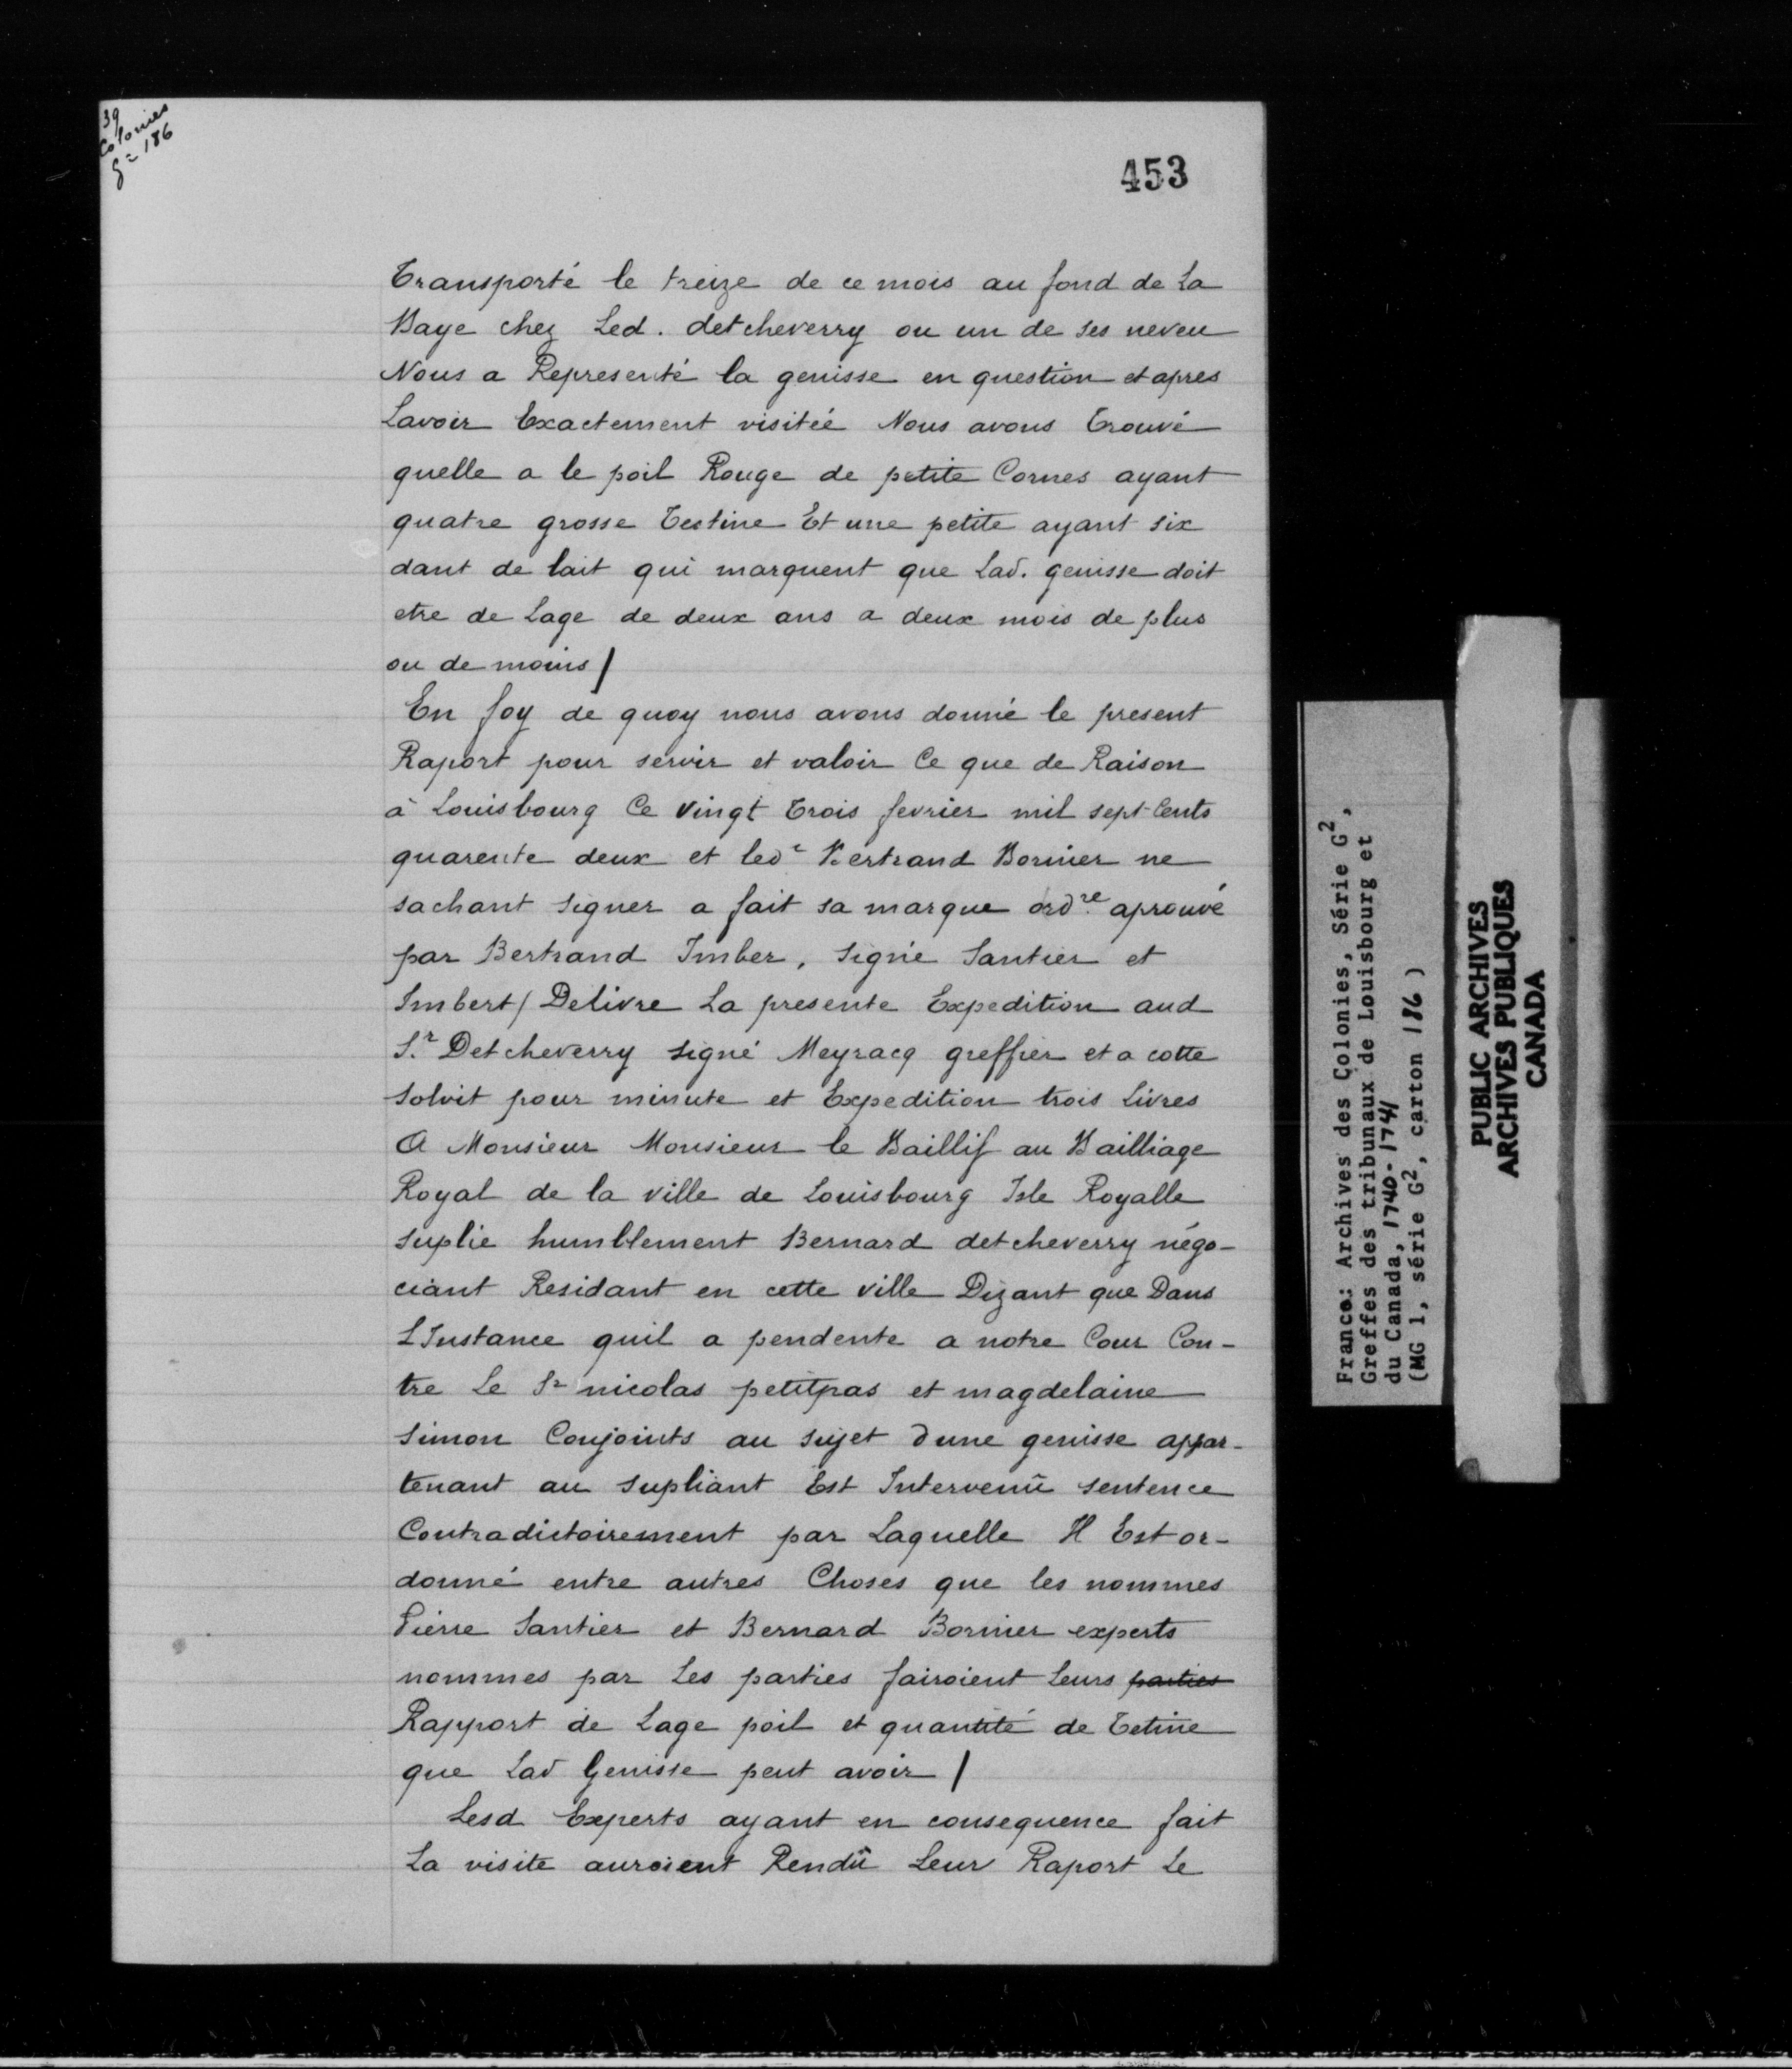 39
Colonies
G² 186
453
Transporté le treize de ce mois au fond de La
Baye chez Led. detcheverry ou un de ses neveu
Nous a Representé la genisse en question et apres
Lavoir Exactement visitée Nous avons Trouvé
quelle a le poil Rouge de petite Cornes ayant
quatre grosse Tectine Et une petite ayant six
dant de lait qui marquent que Lad. genisse doit
etre de Lage de deux ans a deux mois de plus
ou de moins /
En foy de quoy nous avons donné le present
Raport pour servir et valoir Ce que de Raison
à Louisbourg Ce vingt Trois fevrier mil sept Cents
quarente deux et led.t Bertrand Bornier ne
sachant signer a fait sa marque ord.re aprouvé
par Bertrand Imber, signé Santier et
Imbert / Delivre La presente Expedition aud
S.r Detcheverry signé Meyracq greffier et a cotte
solvit pour minute et Expedition trois Livres
A Monsieur Monsieur le Baillif au Bailliage
Royal de la ville de Louisbourg Isle Royalle
suplie humblement Bernard detcheverry négo-
ciant Residant en cette ville Dizant que Dans
LInstance quil a pendente a notre Cour Con-
tre Le Sr nicolas petitpas et magdelaine
simon Conjoints au sujet dune genisse appar-
tenant au supliant Est Intervenû sentence
Contradictoirement par Laquelle Il Est or-
donné entre autres Choses que les nommes
Pierre Santier et Bernard Bornier experts
nommes par Les parties fairoient Leurs parties
Rapport de Lage poil et quantité de Tetine
que Lad Genisse peut avoir /
Lesd Experts ayant en consequence fait
La visite auroient Rendû Leur Raport Le
France: Archives des Colonies, Série G²,
Greffes des tribunaux de Louisbourg et
du Canada, 1740-1741
(MG 1, série G², carton 186 )
PUBLIC ARCHIVES
ARCHIVES PUBLIQUES
CANADA